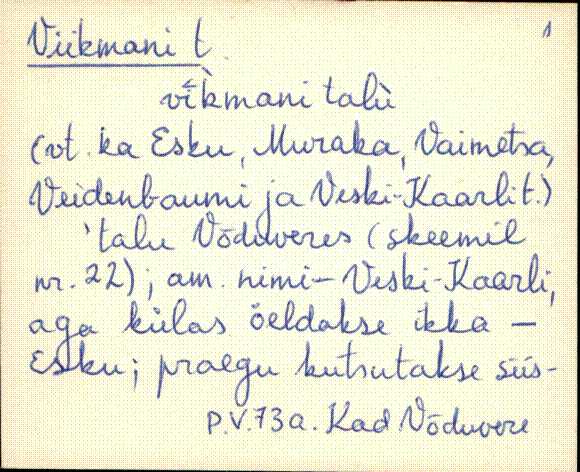 1
Viikmani t.
vīk̀mani talù
(vt. ka Esku, Muraka, Vaimetsa,
Veidenbaumi ja Veski-Kaarli t.)
'talu Võduveres (skeemil
nr. 22); am. nimi - Veski-Kaarli,
aga külas öeldakse ikka -
Esku; praegu kutsutakse siis-
P.V. 73 a. Kad Võduvere